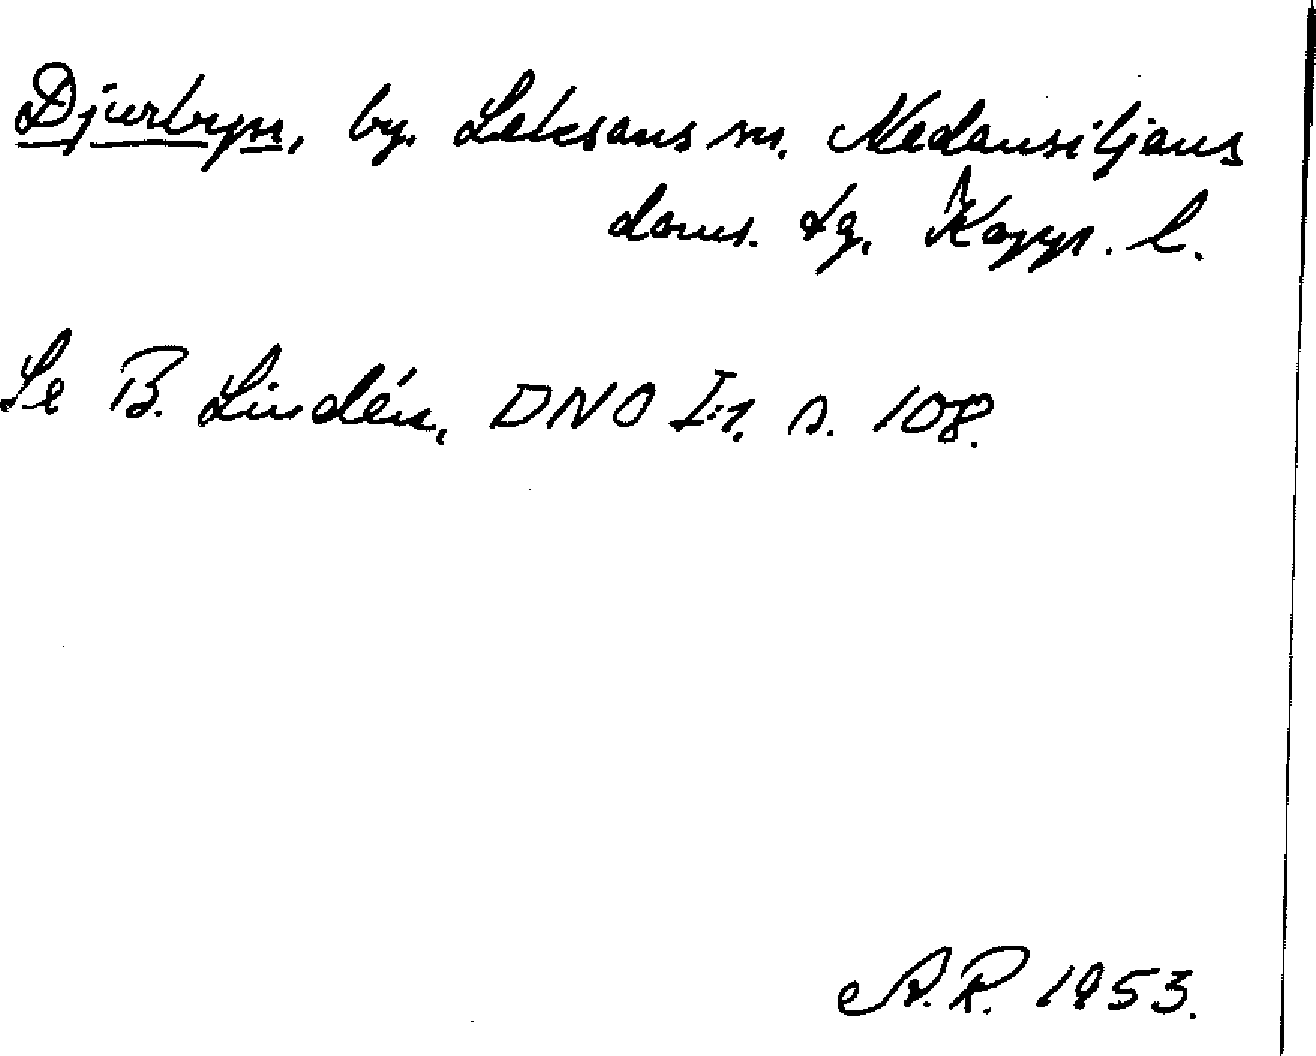 Djurbyn, by. Leksans sn. Nedansiljans
doms. tg. Kopp. l.
Se B. Lindén, DNO I:1. s. 108.
A.R. 1953.